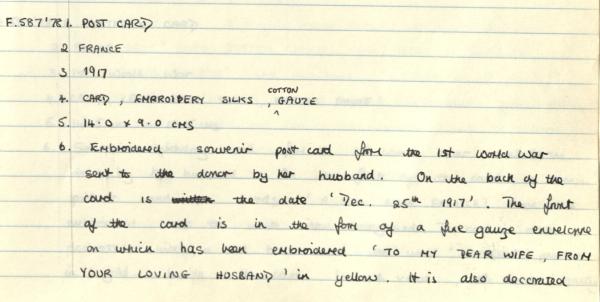 F.587'78 1. POST CARD
2 FRANCE
3 1917
4. CARD, EMBROIDERY SILKS, COTTON GAUZE
5. 14.0 x 9.0 CMS
6. Embroidered souvenir post card from the 1st World War
sent to the donor by her husband. On the back of the
card is written the date 'Dec. 25th 1917'. The front
of the card is in the form of a fine gauze envelope
on which has been embroidered 'TO MY DEAR WIFE, FROM
YOUR LOVING HUSBAND' in yellow. It is also decorated